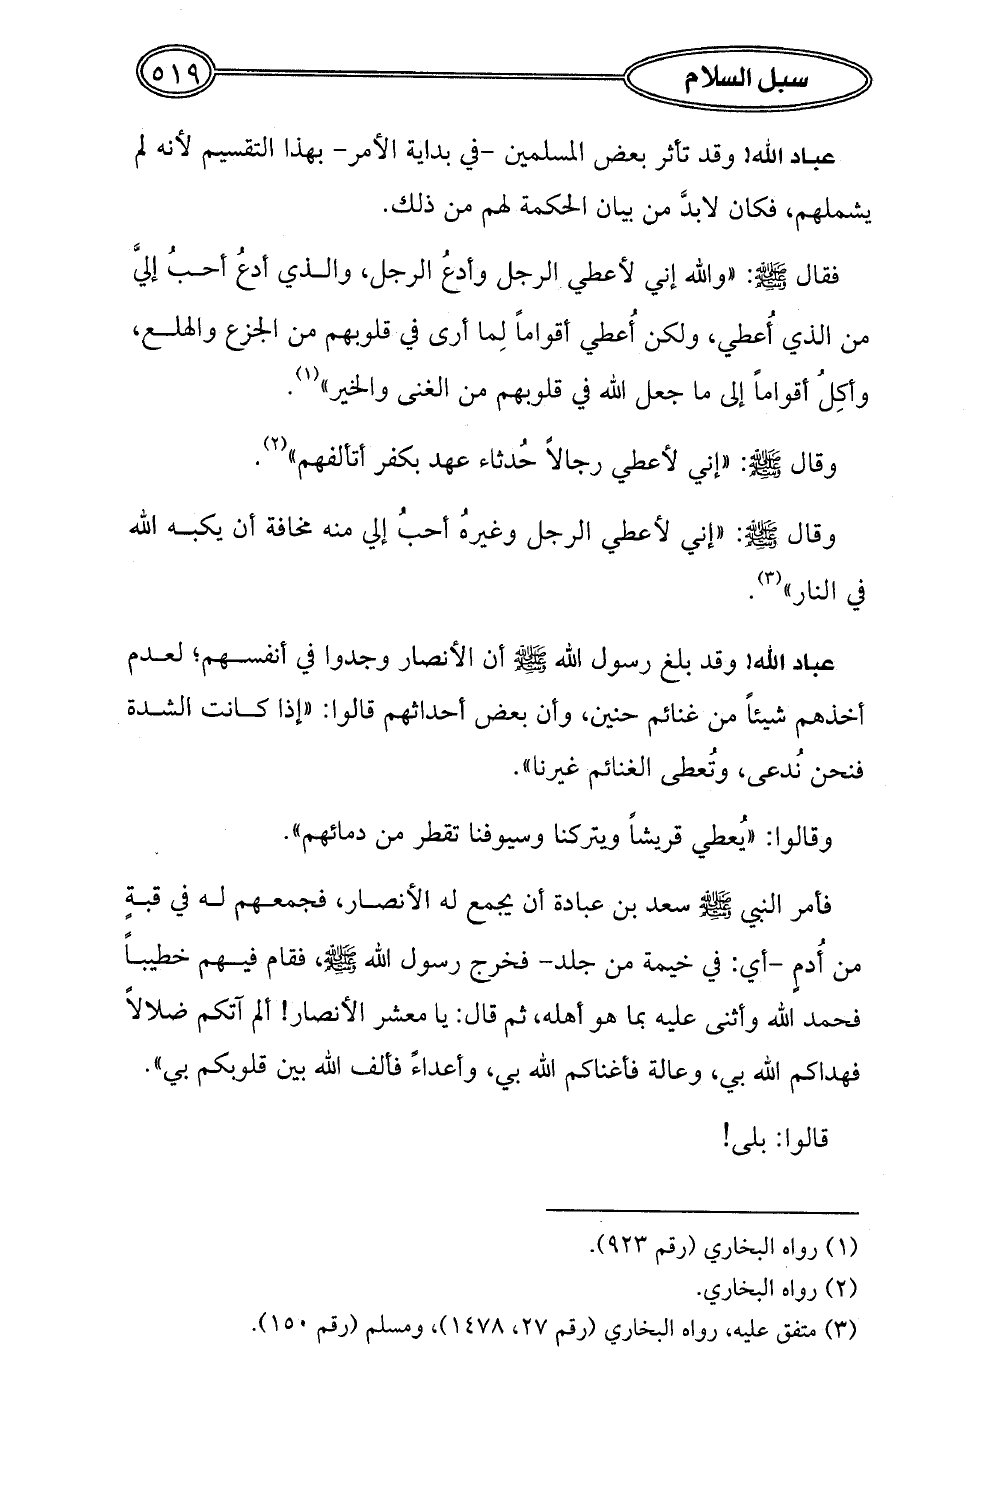 سبل السلام
٥١٩
عباد الله! وقد تأثر بعض المسلمين -في بداية الأمر- بهذا التقسيم لأنه لم
يشملهم، فكان لابدَّ من بيان الحكمة لهم من ذلك.
فقال ﷺ: «والله إني لأعطي الرجل وأدعُ الرجل، والـذي أدعُ أحـبُ إليَّ
من الذي أُعطي، ولكن أُعطي أقواماً لِما أرى في قلوبهم من الجزع والهلـع،
وأكِلُ أقواماً إلى ما جعل الله في قلوبهم من الغنى والخير»(١).
وقال ﷺ: «إني لأعطي رجالاً حُدثاء عهد بكفر أتألفهم»(٢).
وقال ﷺ: «إني لأعطي الرجل وغيرهُ أحبُ إلي منه مخافة أن يكبـه الله
في النار»(٣).
عباد الله! وقد بلغ رسول الله ﷺ أن الأنصار وجدوا في أنفسـهم؛ لعـدم
أخذهم شيئاً من غنائم حنين، وأن بعض أحداثهم قالوا: «إذا كـانت الشـدة
فنحن نُدعى، وتُعطى الغنائم غيرنا».
وقالوا: «يُعطي قريشاً ويتركنا وسيوفنا تقطر من دمائهم».
فأمر النبي ﷺ سعد بن عبادة أن يجمع له الأنصـار، فجمعـهم لـه في قبـةٍ
من أُدمٍ -أي: في خيمة من جلد- فخرج رسول الله ﷺ، فقام فيـهم خطيبـاً
فحمد الله وأثنى عليه بما هو أهله، ثم قال: يا معشر الأنصار! ألم آتكم ضلالاً
فهداكم الله بي، وعالة فأغناكم الله بي، وأعداءً فألف الله بين قلوبكم بي».
قالوا: بلى!
(١) رواه البخاري (رقم ٩٢٣).
(٢) رواه البخاري.
(٣) متفق عليه، رواه البخاري (رقم ٢٧، ١٤٧٨)، ومسلم (رقم ١٥٠).